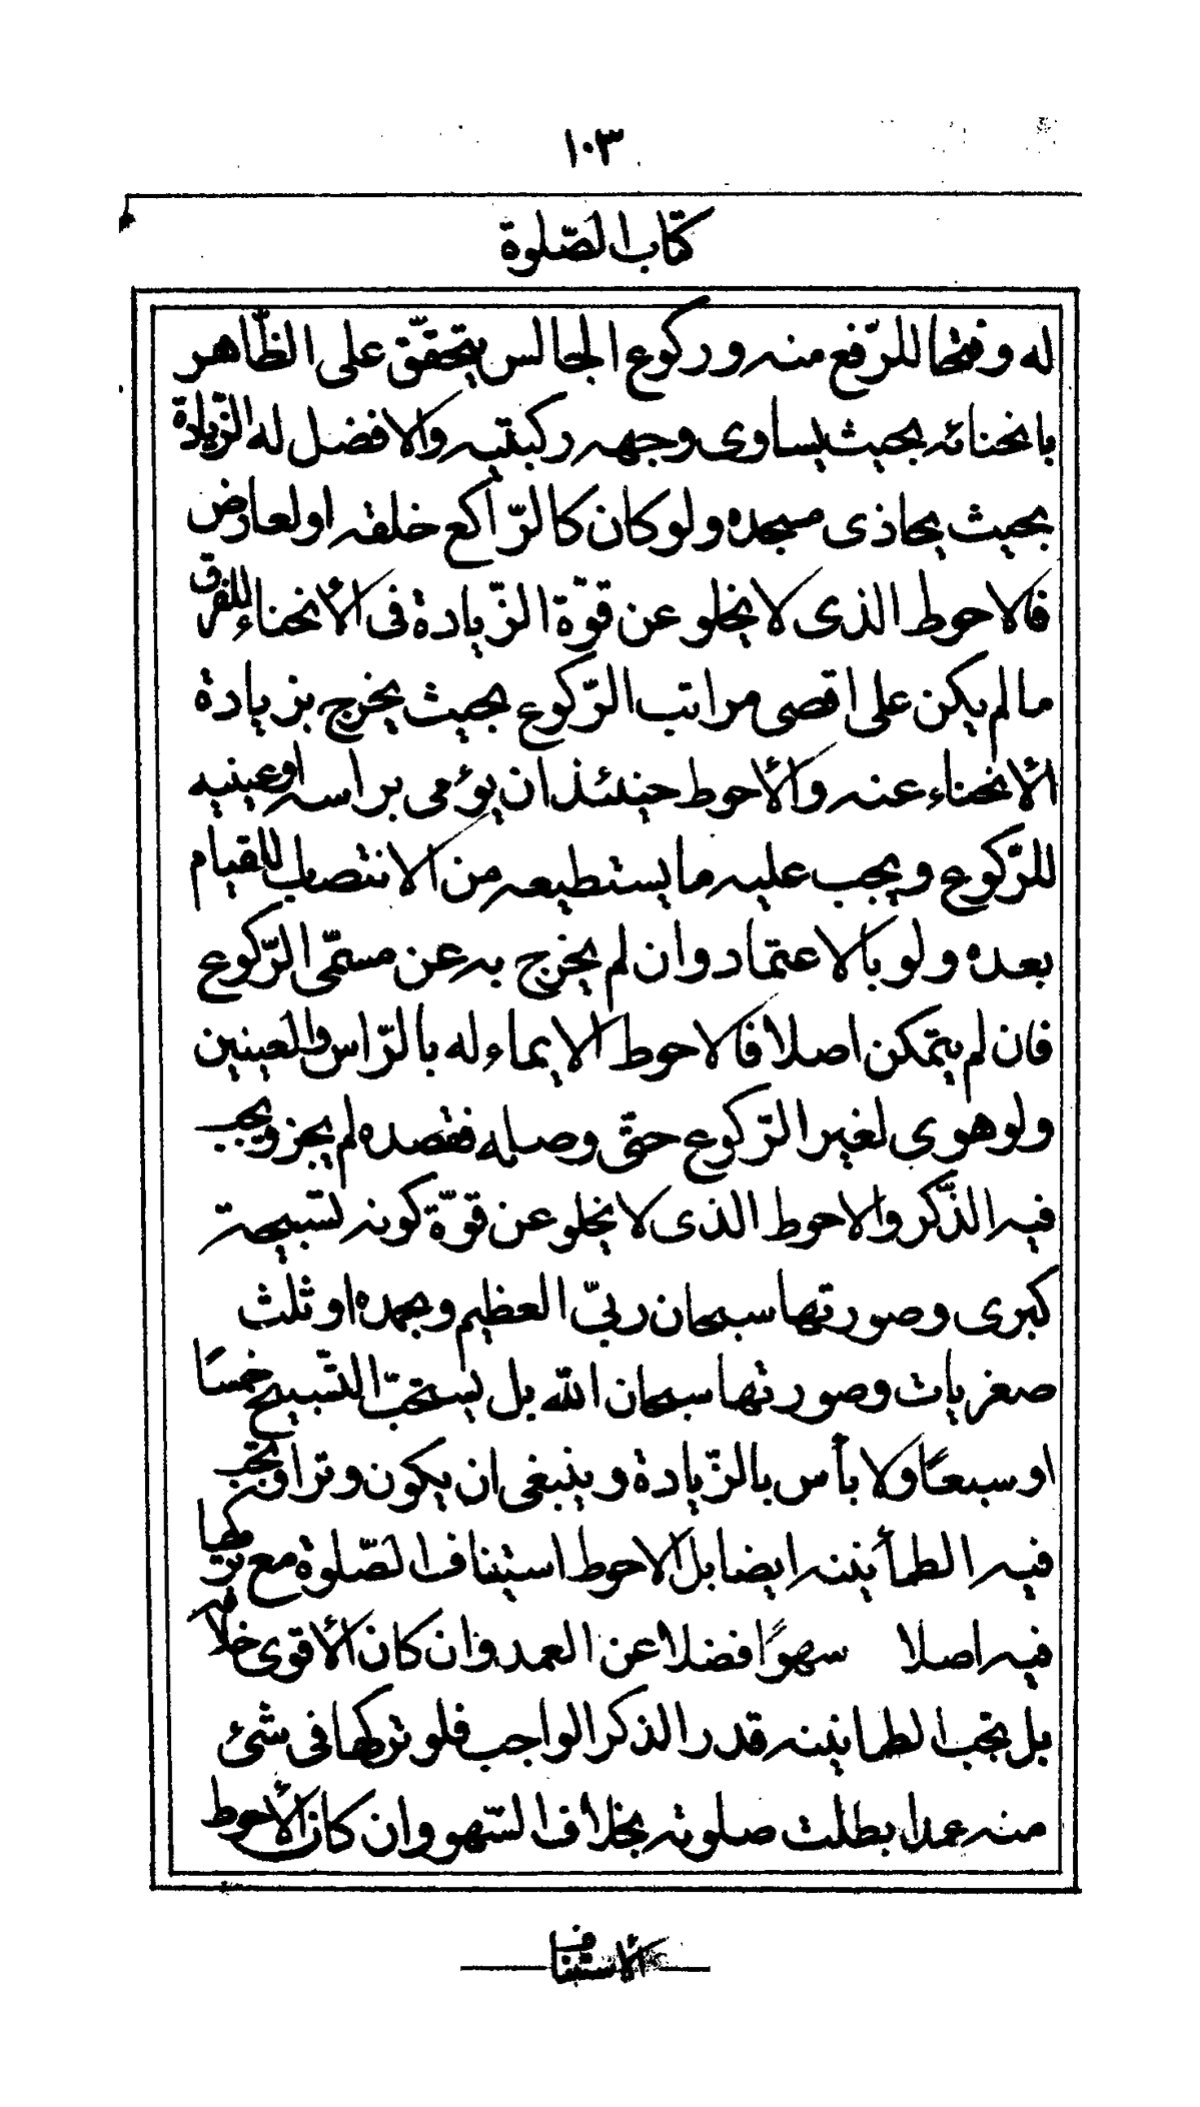 ١٠٣
كتاب الصّلوة
له وفتحا للرّفع منه وركوع الجالس يتحقّق على الظّاهر
بانحنائه بحيث يساوى وجهه ركبتيه والافضل له الزّيادة
بحيث يحاذى مسجده ولو كان كالرّاكع خلقه او لعارض
فالاحوط الذى لا يخلو عن قوّة الزّيادة فى الأنحناء للفرق
ما لم يكن على اقصى مراتب الرّكوع بحيث يخرج بزيادة
الأنحناء عنه والأحوط حينئذ ان يؤمى براسه او عينيه
للرّكوع ويجب عليه ما يستطيعه من الانتصاب للقيام
بعده ولو بالاعتماد وان لم يخرج به عن مسمّى الرّكوع
فان لم يتمكن اصلا فالاحوط الايماء له بالرّاس والعينين
ولو هوى لغير الرّكوع حتّى وصله فقصده لم يجز ويجب
فيه الذّكر والاحوط الذى لا يخلو عن قوّة كونه تسبيحة
كبرى وصورتها سبحان ربّي العظيم وبحمده او ثلث
صغريات وصورتها سبحان الله بل يستحبّ التّسبيح خمسًا
او سبعًا ولا بأس بالزّيادة وينبغى ان يكون وترا وتجب
فيه الطمأنينه ايضا بل الاحوط استيناف الصّلوة مع تركها
فيه اصلا سهوًا فضلا عن العمد وان كان الأقوى خلافه
بل تجب الطمانينه قدر الذكر الواجب فلو تركها فى شئ
منه عمدا بطلت صلوته بخلاف السّهو وان كان الأحوط
الأستيناف